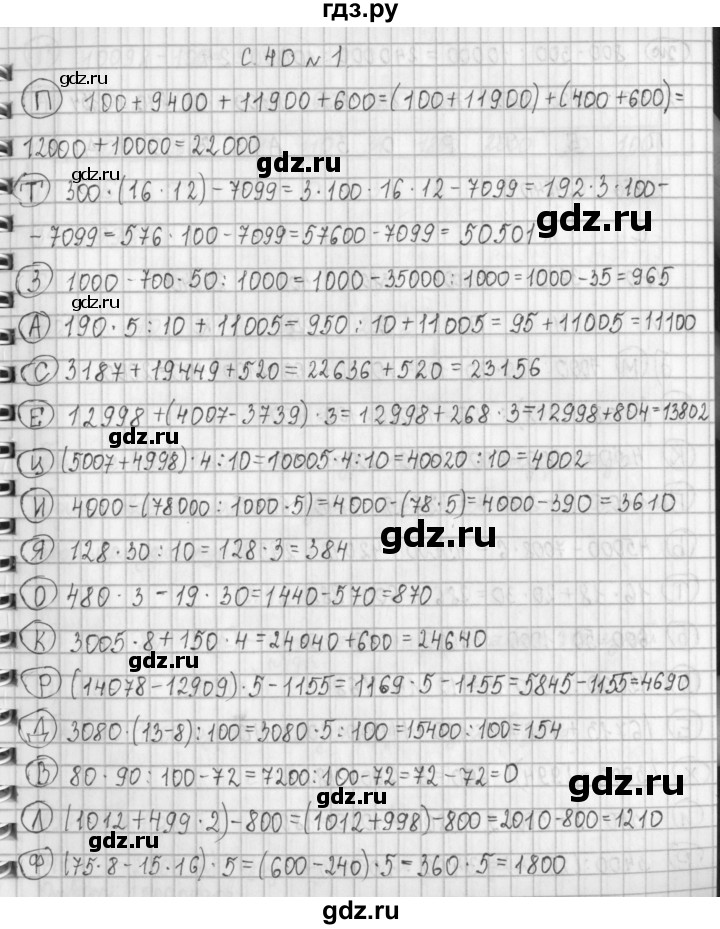 гдз.ру
с. 40 № 1
gdz.ru
П 100+9400+11900+600=(100+11900)+(400+600)=
12000+10000=22000
gdz.ru
Т 300·(16·12)-7099=3·100·16·12-7099=192·3·100-
-7099=576·100-7099=57600-7099=50501
gdz.ru
З 1000-700·50:1000=1000-35000:1000=1000-35=965
gdz.ru
А 190·5:10+11005=950:10+11005=95+11005=11100
С 3187+19449+520=22636+520=23156
gdz.ru
Е 12998+(4007-3739)·3=12998+268·3=12998+804=13802
gdz.ru
Ц (5007+4998)·4:10=10005·4:10=40020:10=4002
И 4000-(78000:1000·5)=4000-(78·5)=4000-390=3610
gdz.ru
Я 128·30:10=128·3=384
О 480·3-19·30=1440-570=870
gdz.ru
К 3005·8+150·4=24040+600=24640
gdz.ru
Р (14078-12909)·5-1155=1169·5-1155=5845-1155=4690
Д 3080·(13-8):100=3080·5:100=15400:100=154
gdz.ru
В 80·90:100-72=7200:100-72=72-72=0
gdz.ru
gdz.ru
Л (1012+499·2)-800=(1012+998)-800=2010-800=1210
gdz.ru
Ф (75·8-15·16)·5=(600-240)·5=360·5=1800
gdz.ru